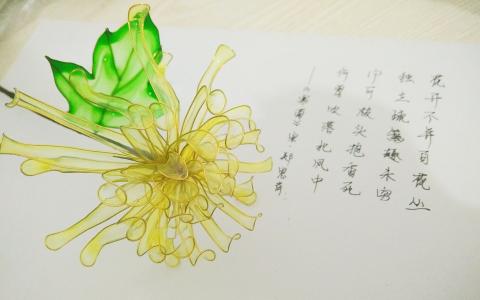 花开不并百花丛
独立疏篱趣未穷
宁可枝头抱香死
何曾吹落北风中
——《寒菊》宋·郑思肖